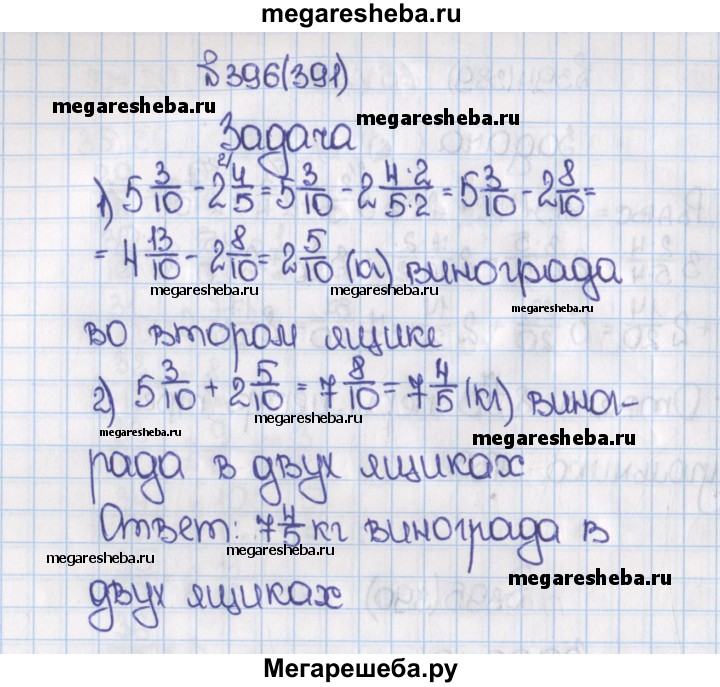 megaresheba.ru
№ 396(391)
megaresheba.ru megaresheba.ru
Задача
1) 5 3/10 - 2 4/5 = 5 3/10 - 2 4·2/5·2 = 5 3/10 - 2 8/10 =
= 4 13/10 - 2 8/10 = 2 5/10 (кг) винограда
megaresheba.ru megaresheba.ru
во втором ящике
2) 5 3/10 + 2 5/10 = 7 8/10 = 7 4/5 (кг) виног-
megaresheba.ru megaresheba.ru megaresheba.ru
рада в двух ящиках
Ответ: 7 4/5 кг винограда в
megaresheba.ru megaresheba.ru megaresheba.ru
двух ящиках
Мегарешеба.ру